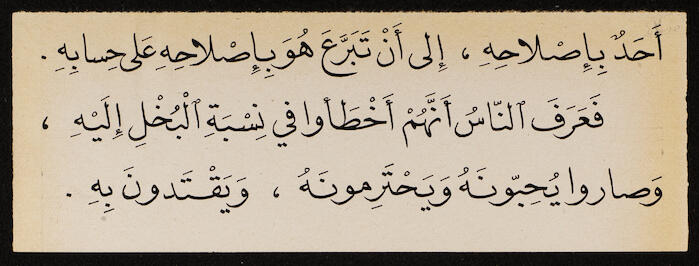 أَحَدٌ بِإِصْلاحِهِ ، إِلى أَنْ تَبَرَّعَ هُوَ بِإِصْلاحِهِ عَلى حِسابِهِ .
فَعَرَفَ ٱلنّاسُ أَنَّهُمْ أَخْطَأوا في نِسْبَةِ ٱلْبُخْلِ إِلَيْهِ ،
وَصاروا يُحِبّونَهُ وَيَحْتَرِمونَهُ ، وَيَقْتَدونَ بِهِ .